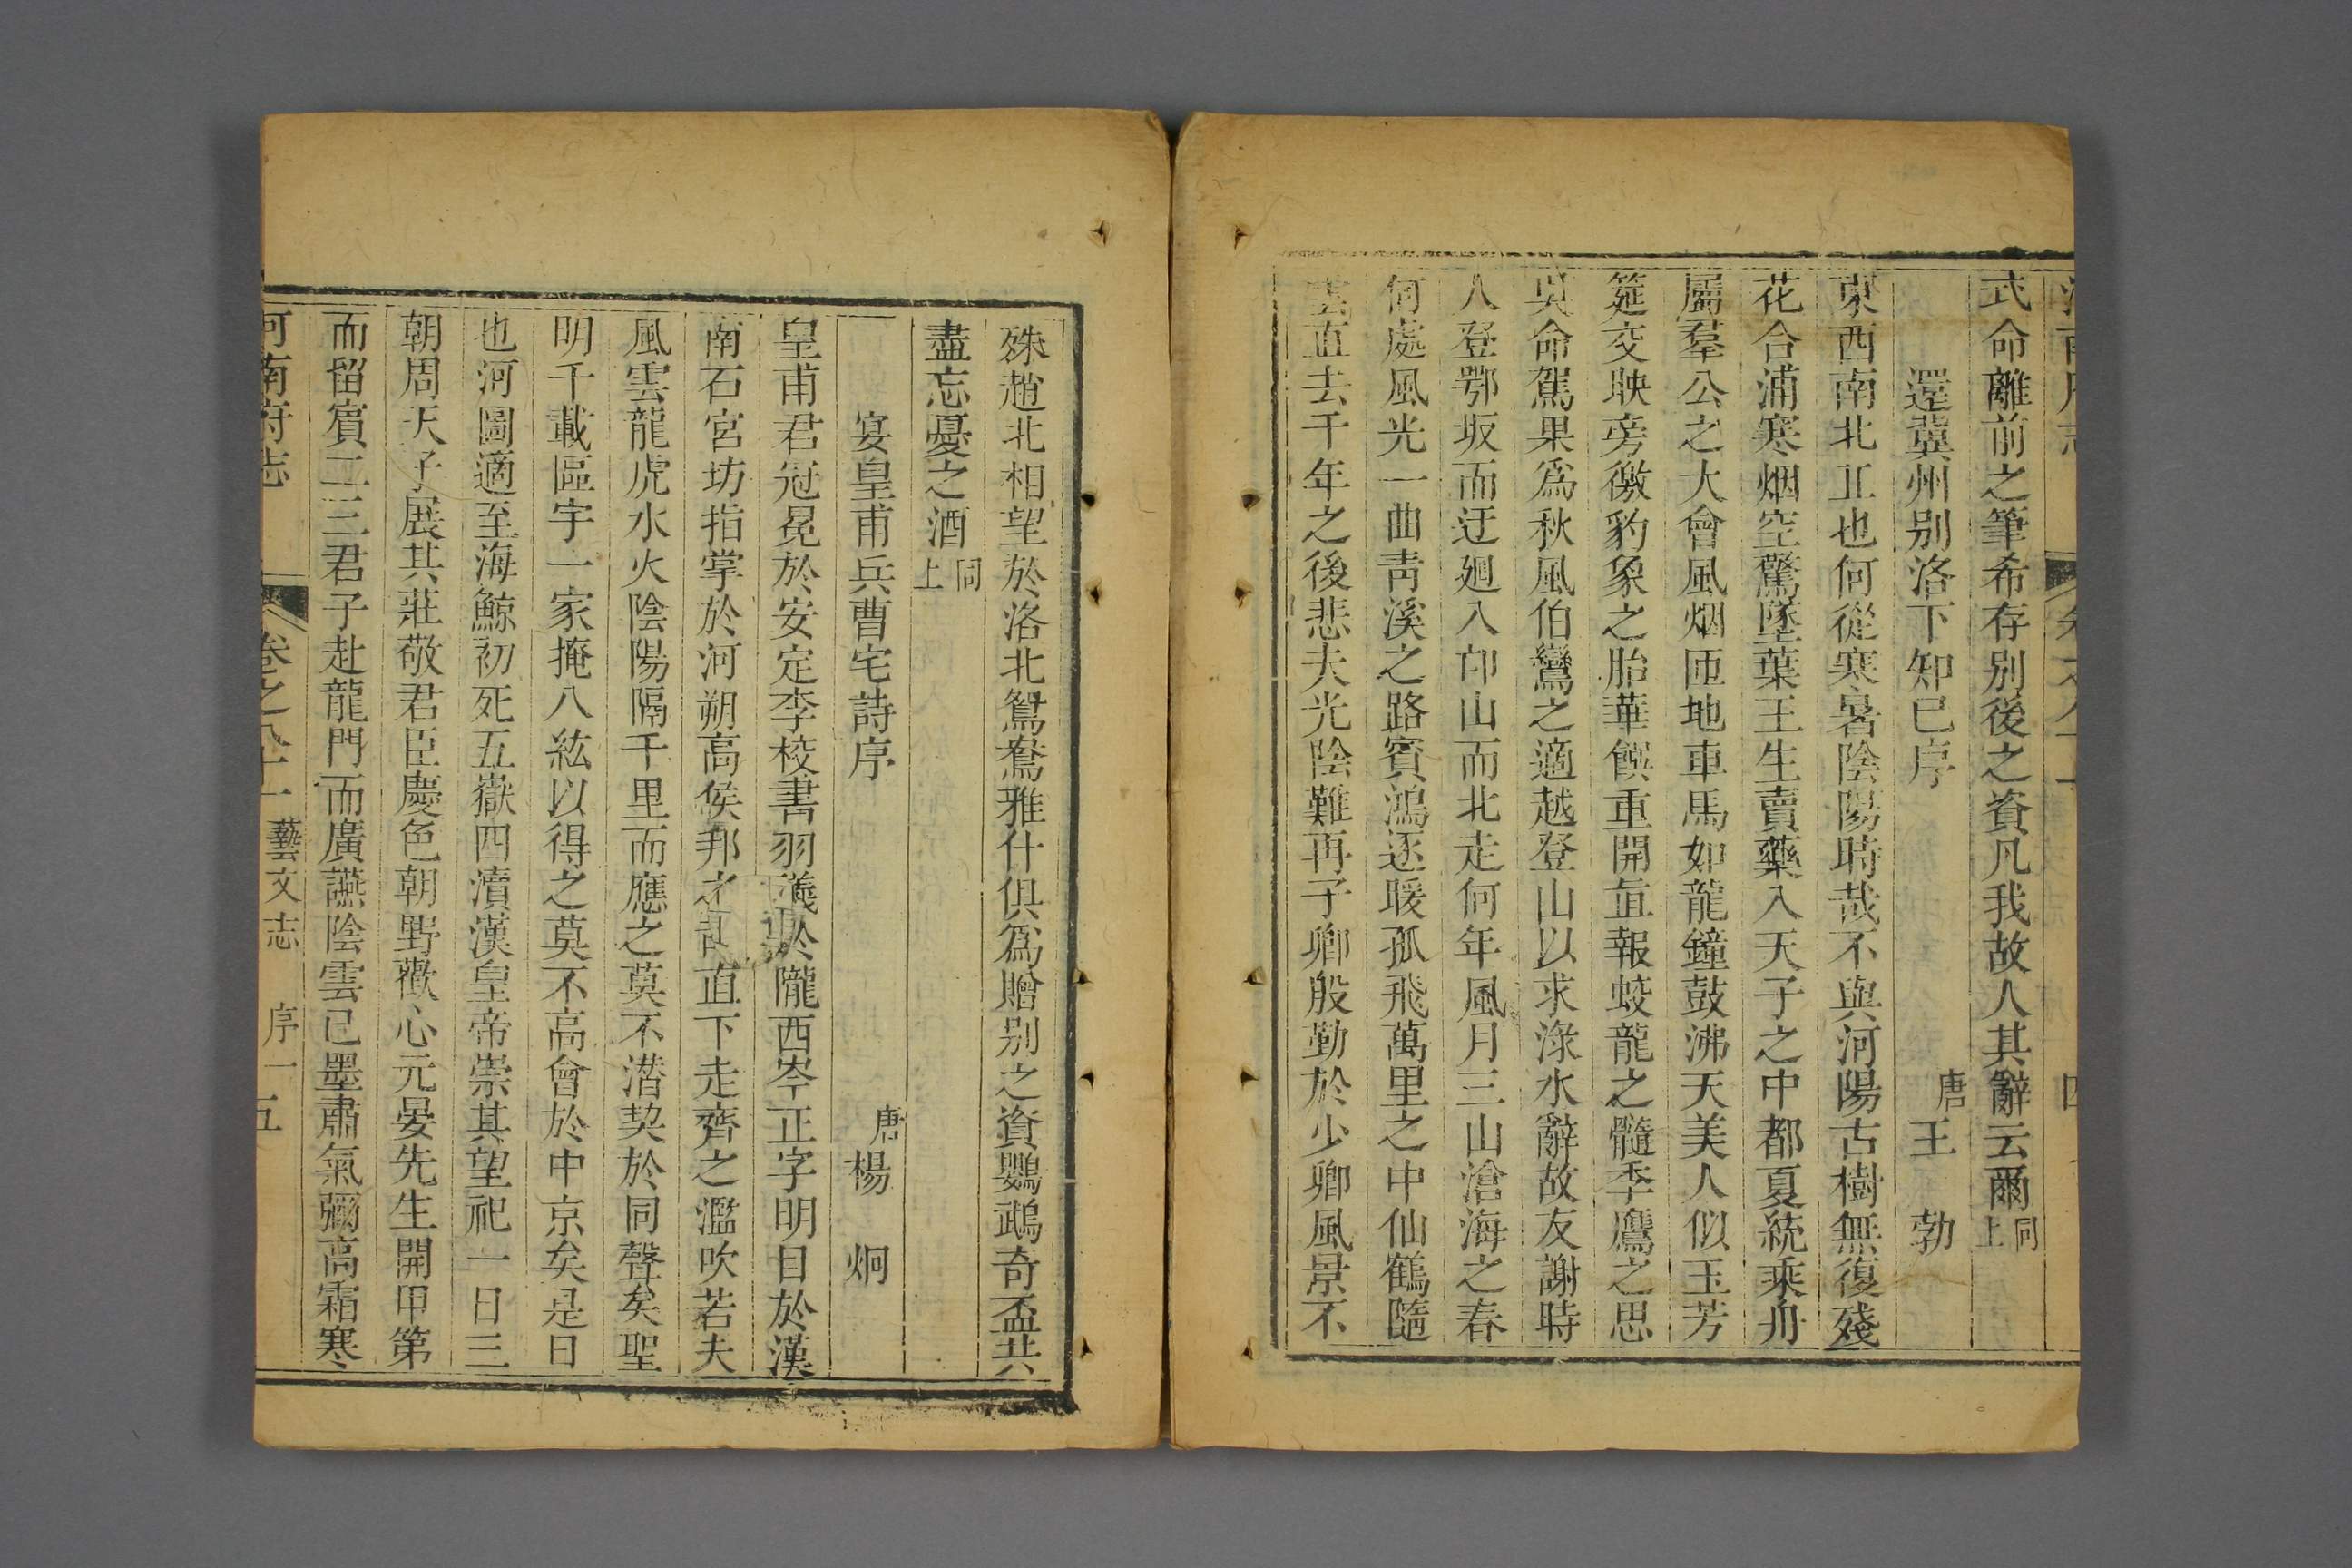 武命離前之筆希存别後之資凡我故人其辭云爾同上
還冀州别洛下知已序
唐王勃
東西南北丘也何從寒暑陰陽時哉不與河陽古樹無復殘
花合浦寒烟空驚墜葉王生賣藥入天子之中都夏統乘舟
屬羣公之大會風烟匝地車馬如龍鐘鼓沸天美人似玉芳
筵交映旁徵豹象之胎華饌重開直報蛟龍之髓季鷹之思
吳命駕果爲秋風伯鸞之適越登山以求淥水辭故友謝時
人登鄂坂而迂廻入邙山而北走何年風月三山滄海之春
何處風光一曲青溪之路賓鴻逐暖孤飛萬里之中仙鶴隨
雲直去千年之後悲夫光陰難再子卿殷勤於少卿風景不
殊趙北相望於洛北鴛鴦雅什俱爲贈别之資鸚鵡奇盃共
盡忘憂之酒同上
宴皇甫兵曹宅詩序
唐楊炯
皇甫君冠冕於安定李校書羽儀於隴西岑正字明目於漢
南石宮坊指掌於河朔高侯邦之司直下走齊之濫吹若夫
風雲龍虎水火陰陽隔千里而應之莫不潛契於同聲矣聖
明千載區宇一家掩八紘以得之莫不高會於中京矣是日
也河圖適至海鯨初死五嶽四瀆漢皇帝崇其望祀一日三
朝周天子展其莊敬君臣慶色朝野歡心元晏先生開甲第
而留賓二三君子赴龍門而廣讌陰雲已墨肅氣彌高霜寒
河南府志 卷之八十一 藝文志 序一 五